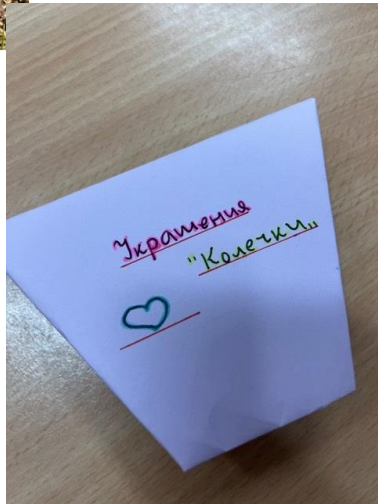 Украшения
"Колечки"